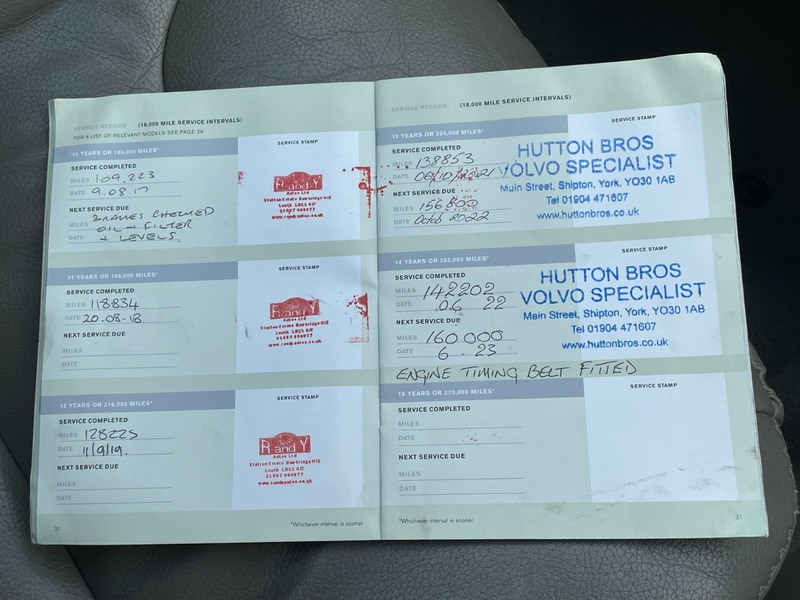 SERVICE RECORD (18,000 MILE SERVICE INTERVALS)
FOR A LIST OF RELEVANT MODELS SEE PAGE 26
10 YEARS OR 180,000 MILES*
SERVICE STAMP
SERVICE COMPLETED
MILES 109,223
DATE 9.08.17
NEXT SERVICE DUE
BRAKES CHECKED
MILES OIL + FILTER
DATE + LEVELS.
R and Y
Autos Ltd
www.randyautos.co.uk
11 YEARS OR 198,000 MILES*
SERVICE STAMP
SERVICE COMPLETED
MILES 118834
DATE 20-08-18
NEXT SERVICE DUE
MILES
DATE
R and Y
Autos Ltd
www.randyautos.co.uk
12 YEARS OR 216,000 MILES*
SERVICE STAMP
SERVICE COMPLETED
MILES 128225
DATE 11/9/19.
NEXT SERVICE DUE
MILES
DATE
R and Y
Autos Ltd
www.randyautos.co.uk
30
*Whichever interval is sooner
SERVICE RECORD (18,000 MILE SERVICE INTERVALS)
13 YEARS OR 234,000 MILES*
SERVICE STAMP
SERVICE COMPLETED
MILES 138853
DATE
NEXT SERVICE DUE
MILES 156800
DATE 2022
HUTTON BROS
VOLVO SPECIALIST
Main Street, Shipton, York, YO30 1AB
Tel 01904 471607
www.huttonbros.co.uk
14 YEARS OR 252,000 MILES*
SERVICE STAMP
SERVICE COMPLETED
MILES 142202
DATE 06 22
NEXT SERVICE DUE
MILES 160000
DATE 6. 23
HUTTON BROS
VOLVO SPECIALIST
Main Street, Shipton, York, YO30 1AB
Tel 01904 471607
www.huttonbros.co.uk
ENGINE TIMING BELT FITTED
15 YEARS OR 270,000 MILES*
SERVICE STAMP
SERVICE COMPLETED
MILES
DATE
NEXT SERVICE DUE
MILES
DATE
*Whichever interval is sooner
31